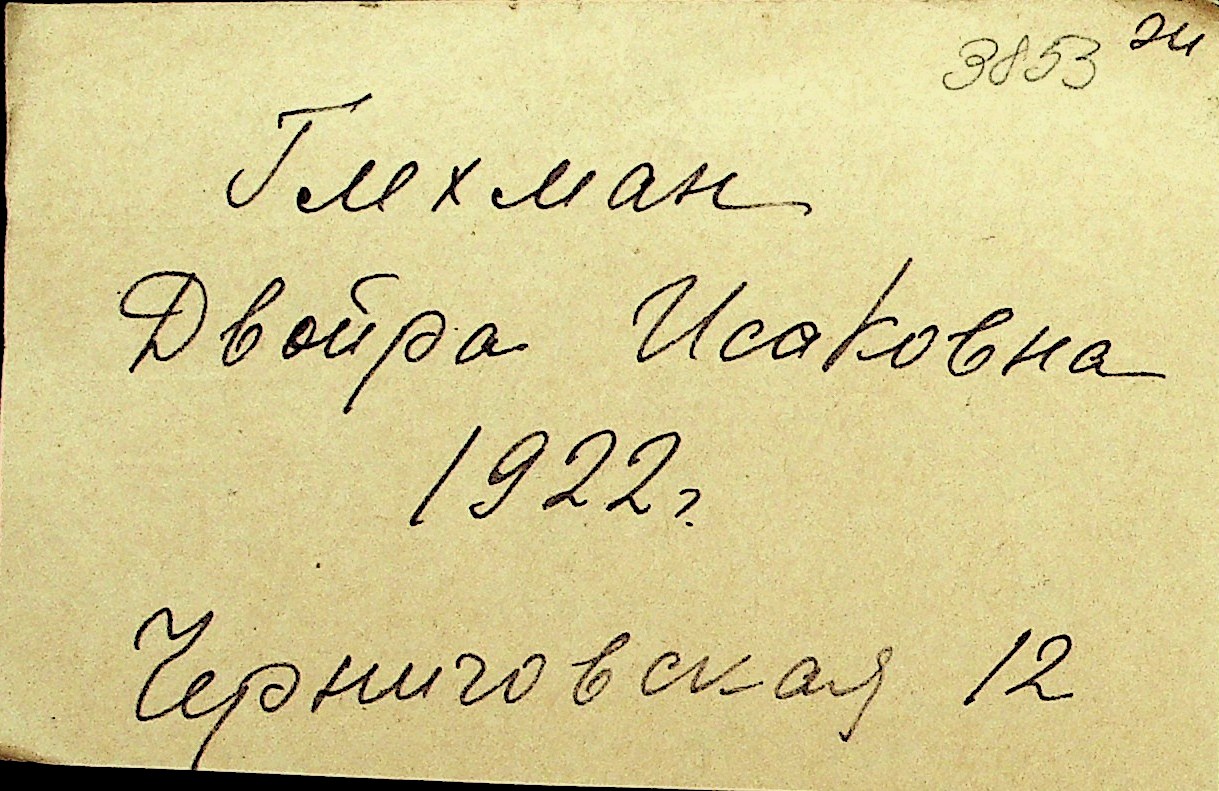 3853 эи
Глехман
Двойра Исаковна
1922г.
Черниговская 12